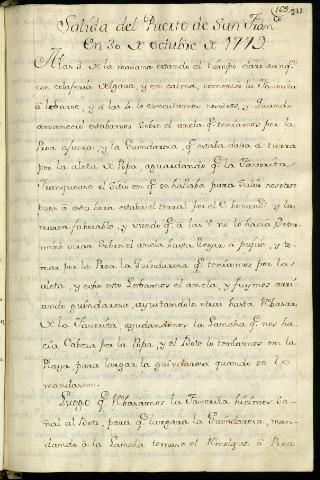 169. 231
Salida del Puerto de San Fran.co
en 30 de octubre de 1779
A las 3 de la mañana estando el tiempo claro aunq.e
con celajeria delgada, y en calma, comensò la Favorita
â lebarse, y â las 4 lo executamos nosotros, y quando
amaneciò estabamos sobre el ancla q.e teniamos por la
Proa afuera, y la Guindaresa q.e estaba dada â tierra
por la aleta de Popa, aguardando q.e la Favorita
franquease el sitio en q.e se hallaba para salir nosotros
pues â esta hora estaba el terral por el E. bonancible y la
marea faborable, y viendo q.e â las no lo hacia Deter-
minè virar sobre el ancla hasta llegar â pique, y to-
mar por la Proa la Guindaresa q.e teniamos por la
aleta, y echo esto Lebamos el ancla, y fuymos arri-
ando guindaresa, ayustandole otras hasta revasar
de la Favorita ayudandonos la Lancha q.e nos ha-
cia Cabeza por la Popa, y el Bote lo teniamos en la
Playa para largar la guindaresa quando se lo
mandasen.
Luego q.e revasamos la Favorita hicimos se-
ñal al Bote, para q.e largara la Guindaresa, man-
dando â la Lancha tomase el remolque â Proa